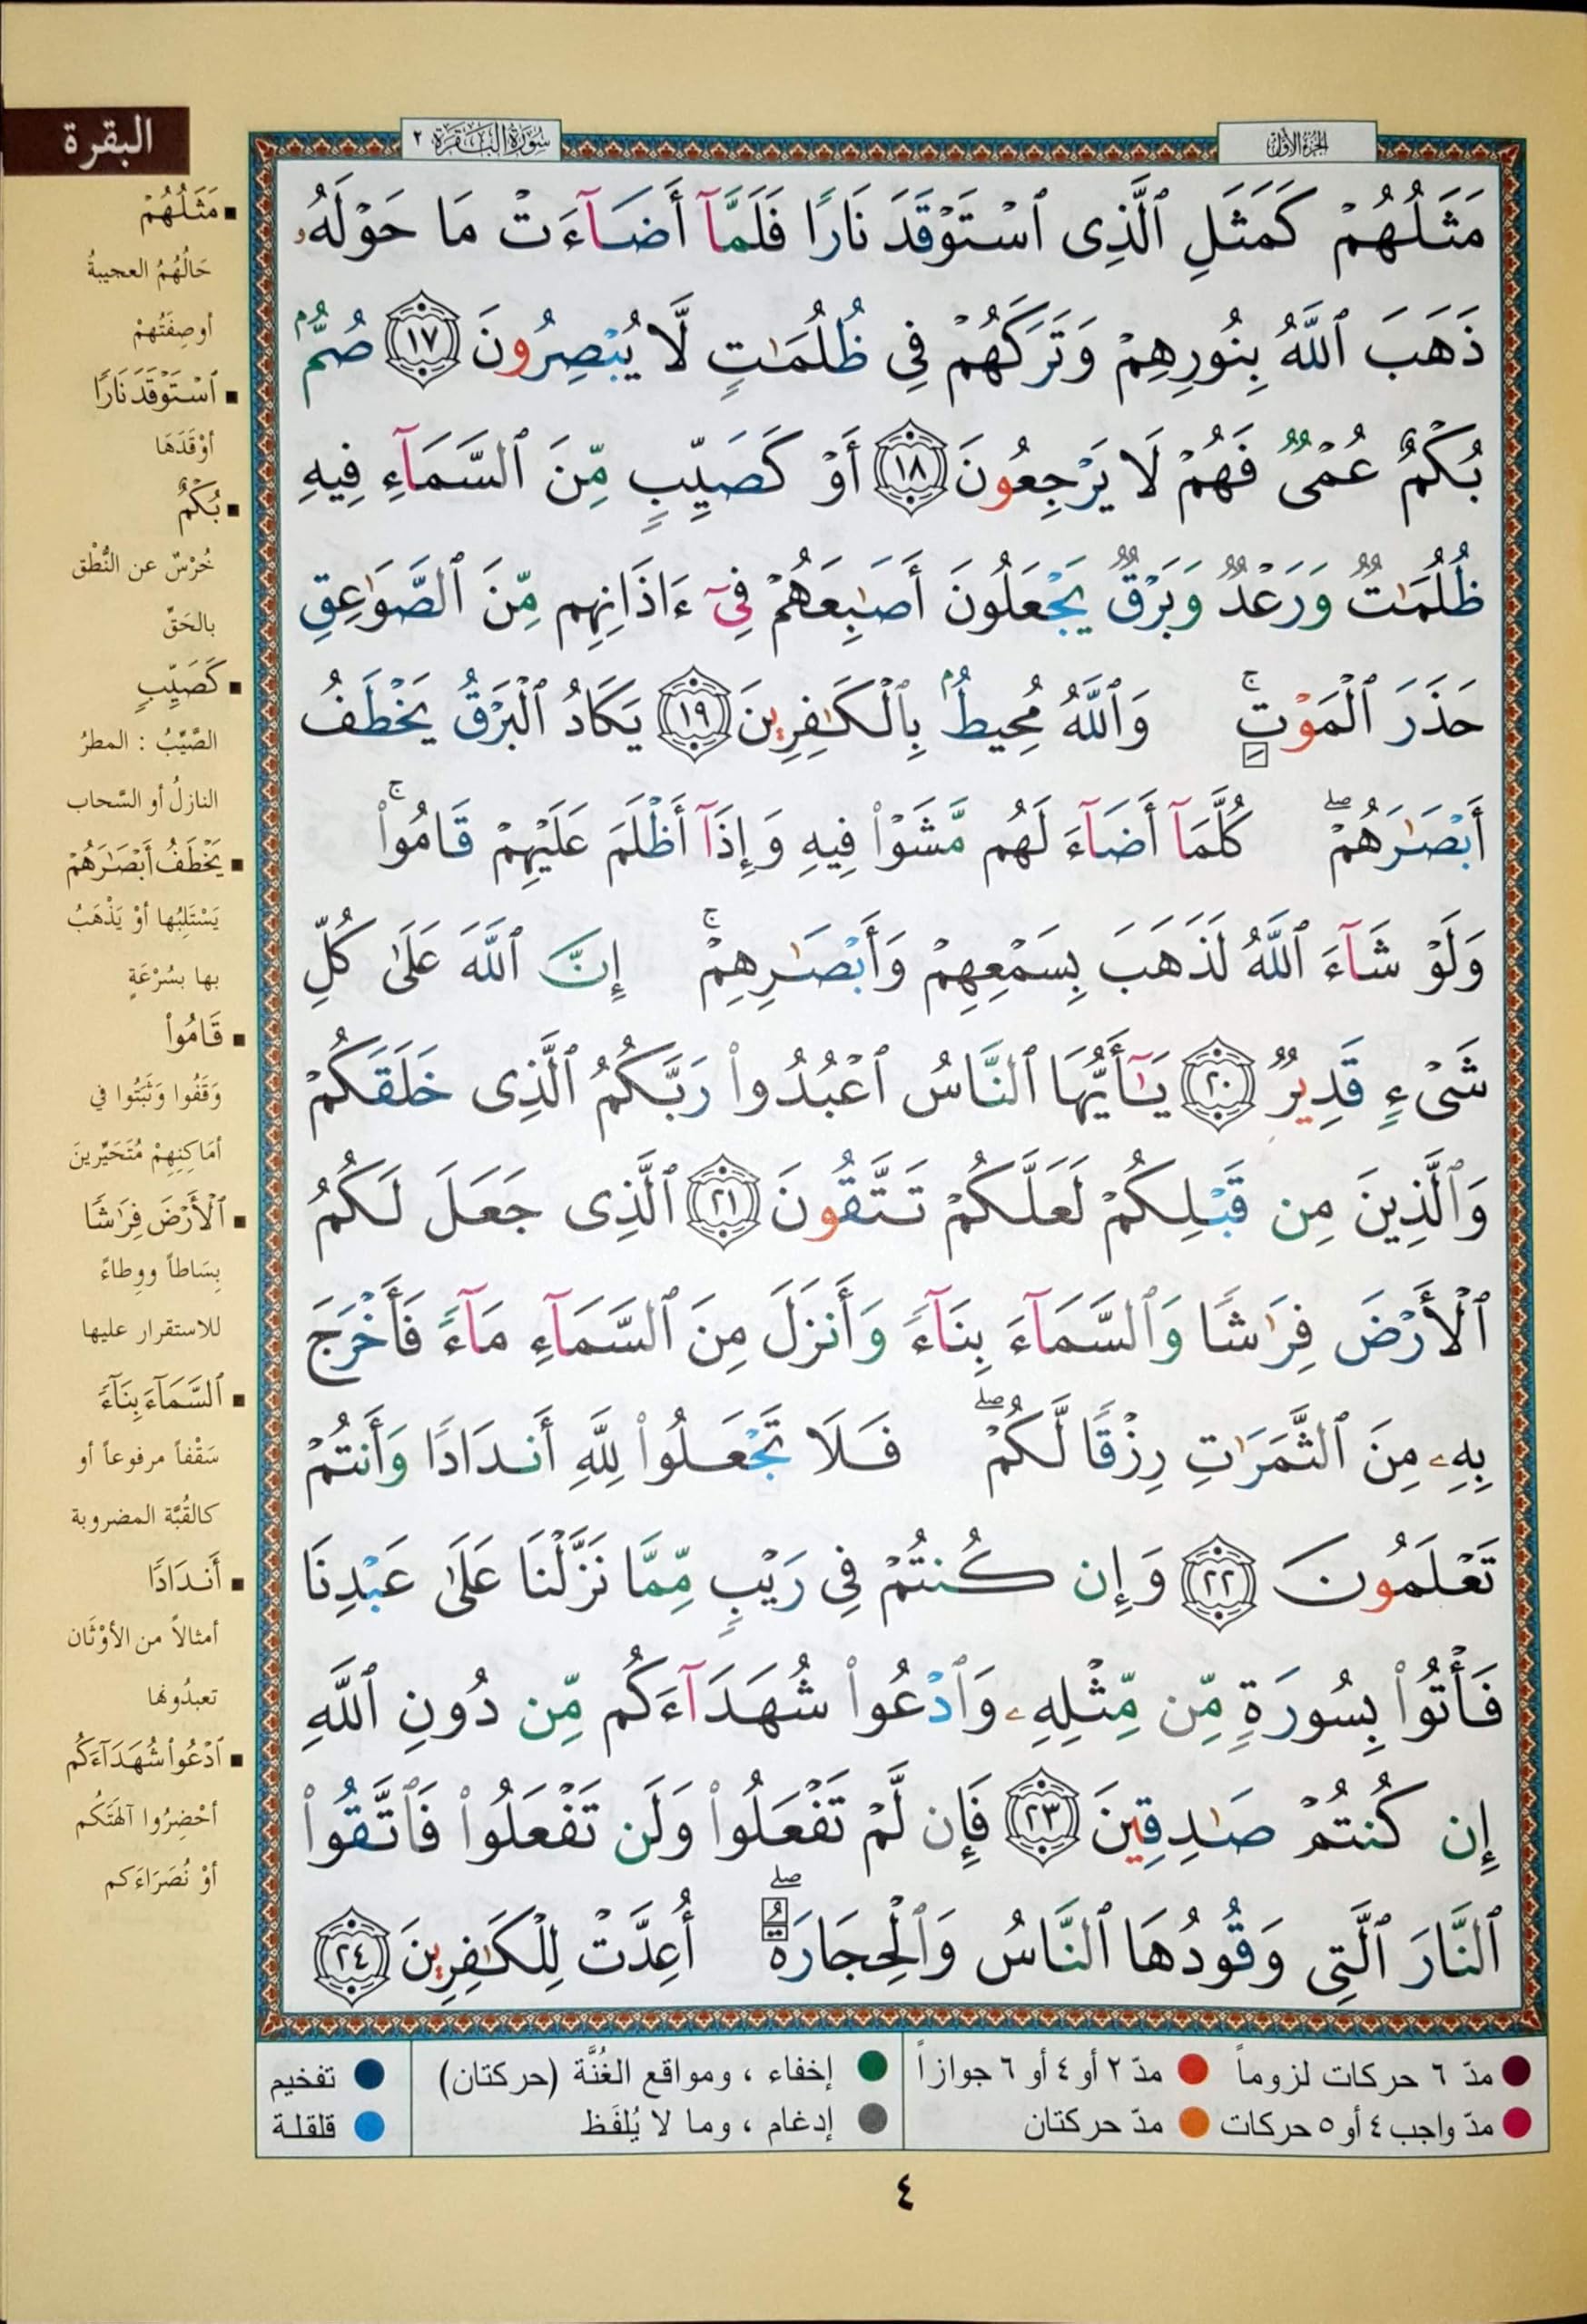 الجزء الأول
سورة البقرة ٢
البقرة
مَثَلُهُمْ كَمَثَلِ ٱلَّذِى ٱسْتَوْقَدَ نَارًا فَلَمَّآ أَضَآءَتْ مَا حَوْلَهُۥ
ذَهَبَ ٱللَّهُ بِنُورِهِمْ وَتَرَكَهُمْ فِى ظُلُمَٰتٍ لَّا يُبْصِرُونَ ١٧ صُمٌّۢ
بُكْمٌ عُمْىٌ فَهُمْ لَا يَرْجِعُونَ ١٨ أَوْ كَصَيِّبٍ مِّنَ ٱلسَّمَآءِ فِيهِ
ظُلُمَٰتٌ وَرَعْدٌ وَبَرْقٌ يَجْعَلُونَ أَصَٰبِعَهُمْ فِىٓ ءَاذَانِهِم مِّنَ ٱلصَّوَٰعِقِ
حَذَرَ ٱلْمَوْتِ ۚ وَٱللَّهُ مُحِيطٌۢ بِٱلْكَٰفِرِينَ ١٩ يَكَادُ ٱلْبَرْقُ يَخْطَفُ
أَبْصَٰرَهُمْ ۖ كُلَّمَآ أَضَآءَ لَهُم مَّشَوْا۟ فِيهِ وَإِذَآ أَظْلَمَ عَلَيْهِمْ قَامُوا۟ ۚ
وَلَوْ شَآءَ ٱللَّهُ لَذَهَبَ بِسَمْعِهِمْ وَأَبْصَٰرِهِمْ ۚ إِنَّ ٱللَّهَ عَلَىٰ كُلِّ
شَىْءٍ قَدِيرٌ ٢٠ يَٰٓأَيُّهَا ٱلنَّاسُ ٱعْبُدُوا۟ رَبَّكُمُ ٱلَّذِى خَلَقَكُمْ
وَٱلَّذِينَ مِن قَبْلِكُمْ لَعَلَّكُمْ تَتَّقُونَ ٢١ ٱلَّذِى جَعَلَ لَكُمُ
ٱلْأَرْضَ فِرَٰشًا وَٱلسَّمَآءَ بِنَآءً وَأَنزَلَ مِنَ ٱلسَّمَآءِ مَآءً فَأَخْرَجَ
بِهِۦ مِنَ ٱلثَّمَرَٰتِ رِزْقًا لَّكُمْ ۖ فَلَا تَجْعَلُوا۟ لِلَّهِ أَندَادًا وَأَنتُمْ
تَعْلَمُونَ ٢٢ وَإِن كُنتُمْ فِى رَيْبٍ مِّمَّا نَزَّلْنَا عَلَىٰ عَبْدِنَا
فَأْتُوا۟ بِسُورَةٍ مِّن مِّثْلِهِۦ وَٱدْعُوا۟ شُهَدَآءَكُم مِّن دُونِ ٱللَّهِ
إِن كُنتُمْ صَٰدِقِينَ ٢٣ فَإِن لَّمْ تَفْعَلُوا۟ وَلَن تَفْعَلُوا۟ فَٱتَّقُوا۟
ٱلنَّارَ ٱلَّتِى وَقُودُهَا ٱلنَّاسُ وَٱلْحِجَارَةُ ۖ أُعِدَّتْ لِلْكَٰفِرِينَ ٢٤
▪ مَثَلُهُمْ
حَالُهُمُ العجيبةُ
أوصِفَتُهمْ
▪ ٱسْتَوْقَدَ نَارًا
أوْقَدَهَا
▪ بُكْمٌ
خُرْسٌ عن النُّطْق
بالحَقِّ
▪ كَصَيِّبٍ
الصَّيِّبُ : المطرُ
النازلُ أو السَّحاب
▪ يَخْطَفُ أَبْصَٰرَهُمْ
يَسْتَلِبُها أوْ يَذْهَبُ
بها بسُرْعَةٍ
▪ قَامُوا۟
وَقَفُوا وَثَبَتُوا في
أمَاكِنِهِمْ مُتَحَيِّرينَ
▪ ٱلْأَرْضَ فِرَٰشًا
بِسَاطاً ووِطاءً
للاستقرار عليها
▪ ٱلسَّمَآءَ بِنَآءً
سَقْفاً مرفوعاً أو
كالقُبَّة المضروبة
▪ أَندَادًا
أمثالاً من الأوْثَان
تعبدُونها
▪ ٱدْعُوا۟ شُهَدَآءَكُم
أحْضِرُوا آلهَتَكُم
أوْ نُصَرَاءَكم
مدّ ٦ حركات لزوماً
مدّ ٢ أو ٤ أو ٦ جوازاً
إخفاء ، ومواقع الغُنَّة (حركتان)
تفخيم
مدّ واجب ٤ أو ٥ حركات
مدّ حركتان
إدغام ، وما لا يُلفَظ
قلقلة
٤